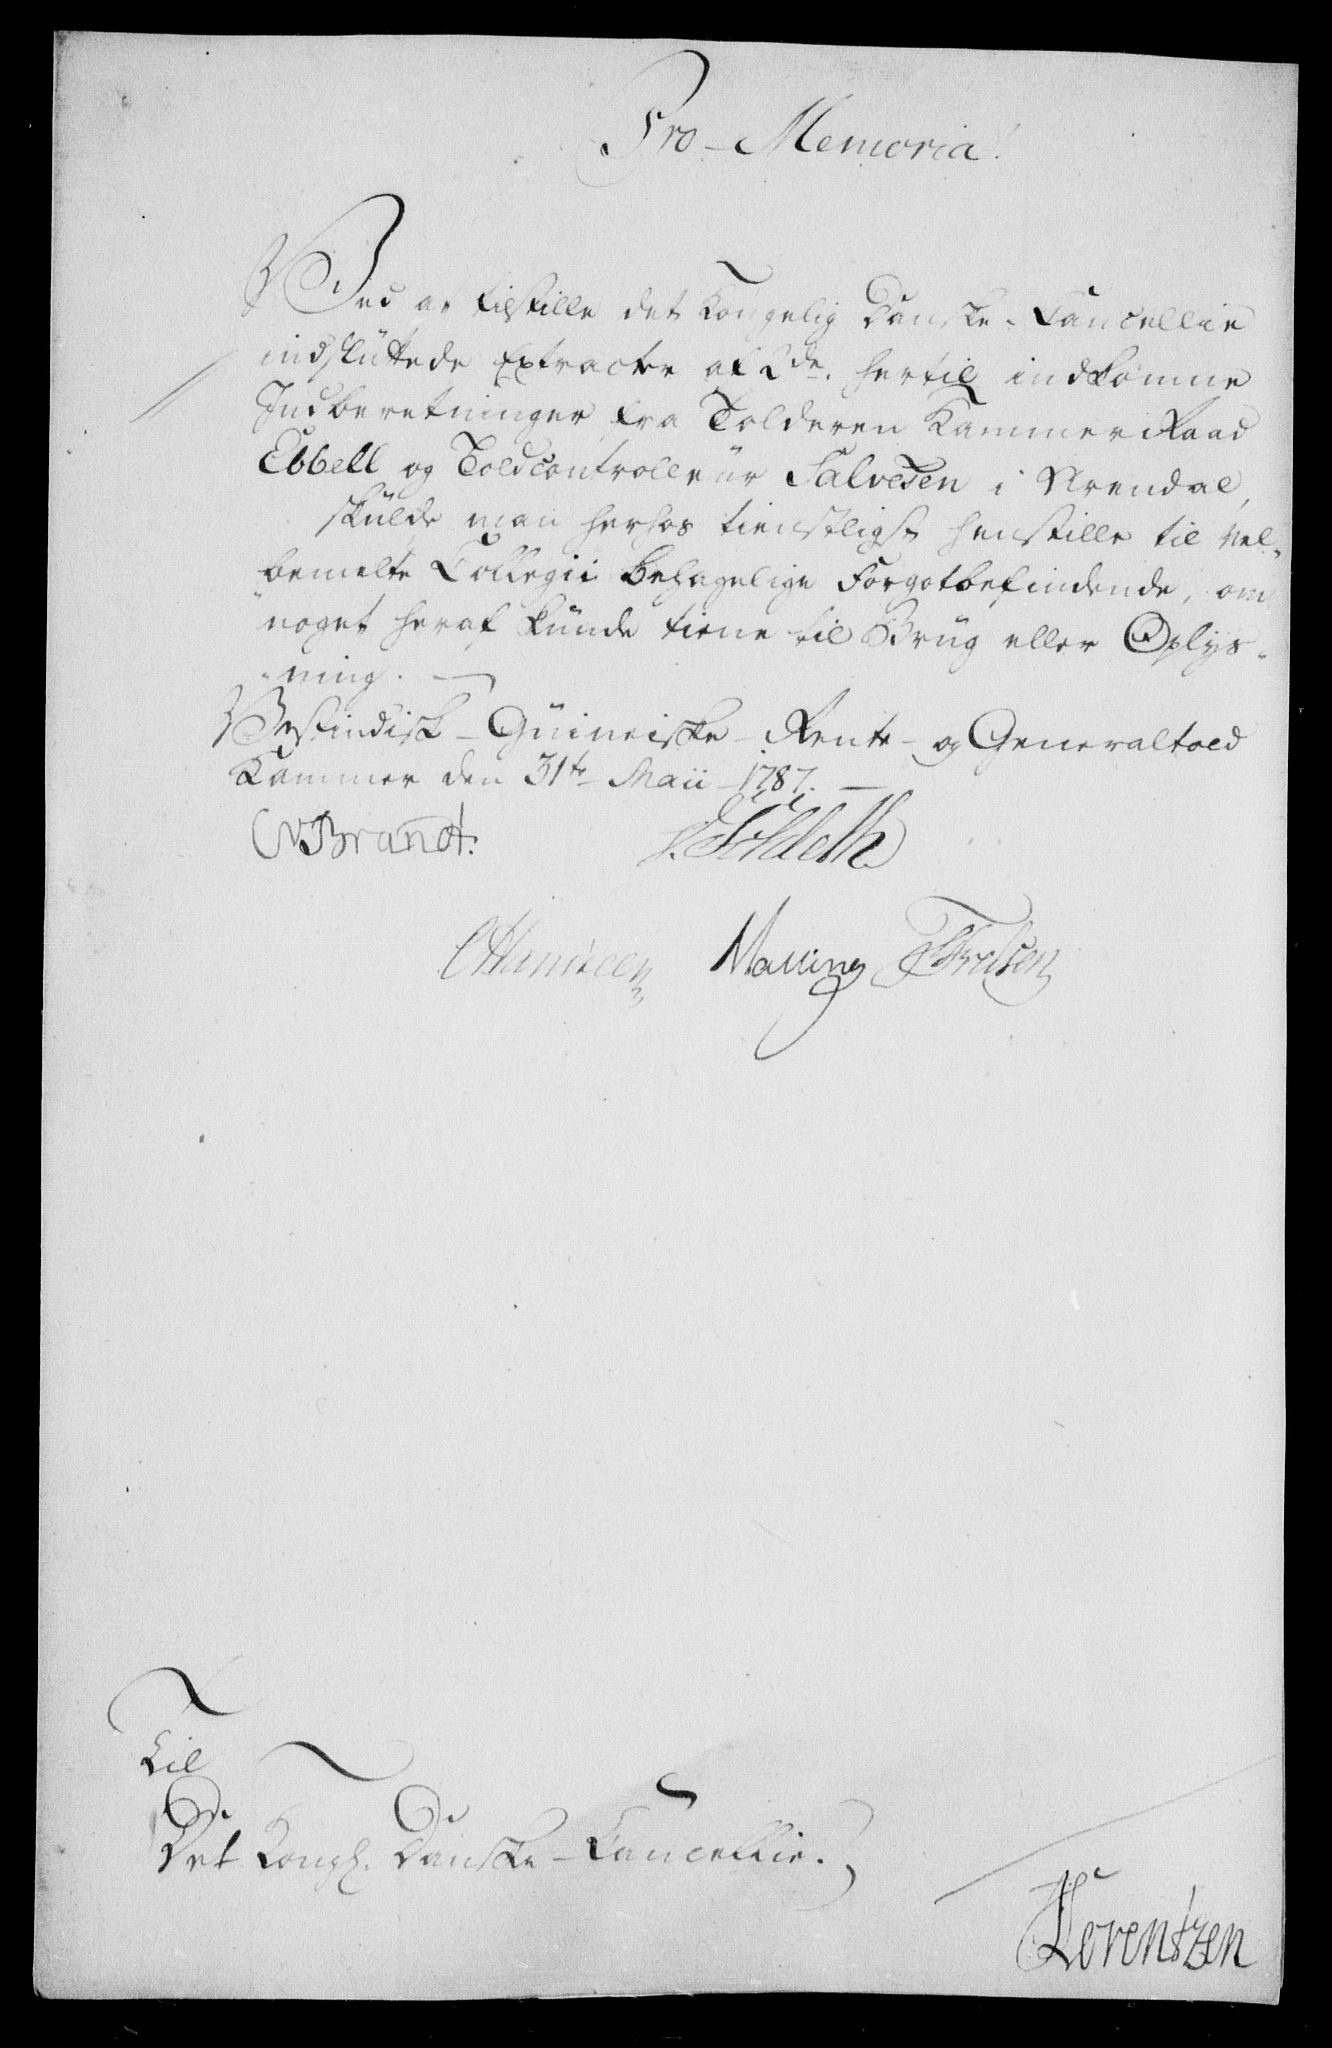 Pro-Memoria!
Ved at tilstille det Kongelig Danske-Cancellie
indsluttede Extracter af 2de. hertil indkomne
Indberetninger fra Tolderen KammerRaad
Ebbell og Toldcontrolleur Salvesen i Arendal,
skulde man herhos tienstligst henstille til vel-
bemelte Collegii behagelige Forgotbefindende, om
noget heraf kunde tiene til Brug eller Oplys-
-ning. —
Vestindisk-Guineiske-Rente- og Generaltold
Kammer den 31te Maii 1787. —
Brandt.
Hansteen Malling
Til
Det Kongl. Danske-Cancellie.
Lorentzen